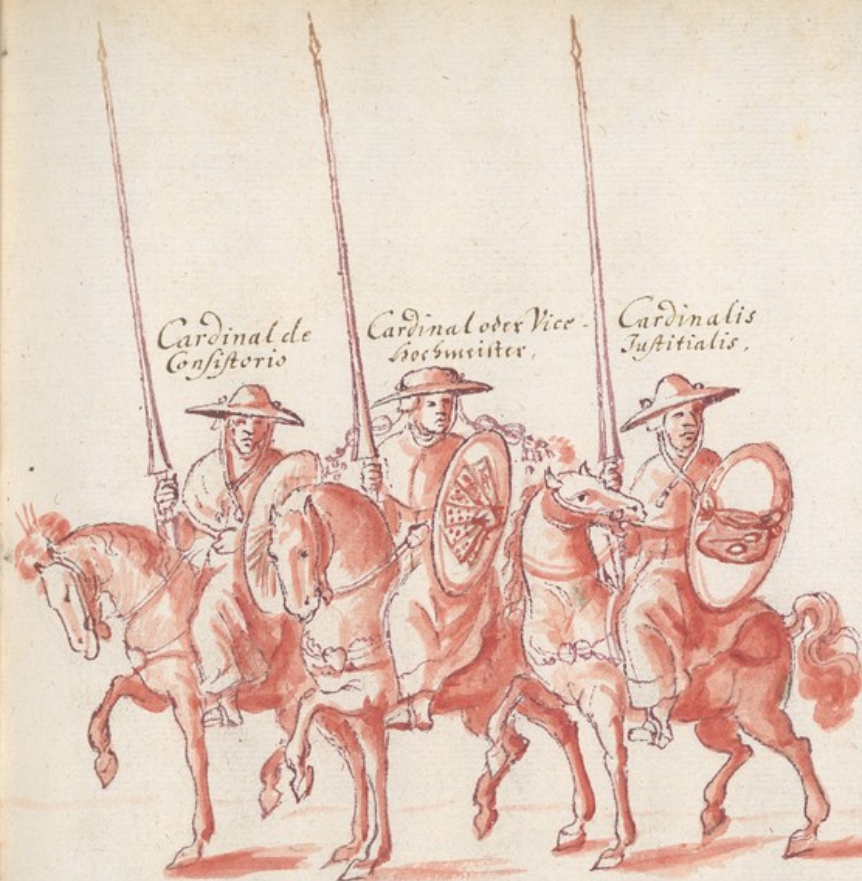 Cardinal de
Consistorio
Cardinal oder Vice-
Hochmeister,
Cardinalis
Justitialis,